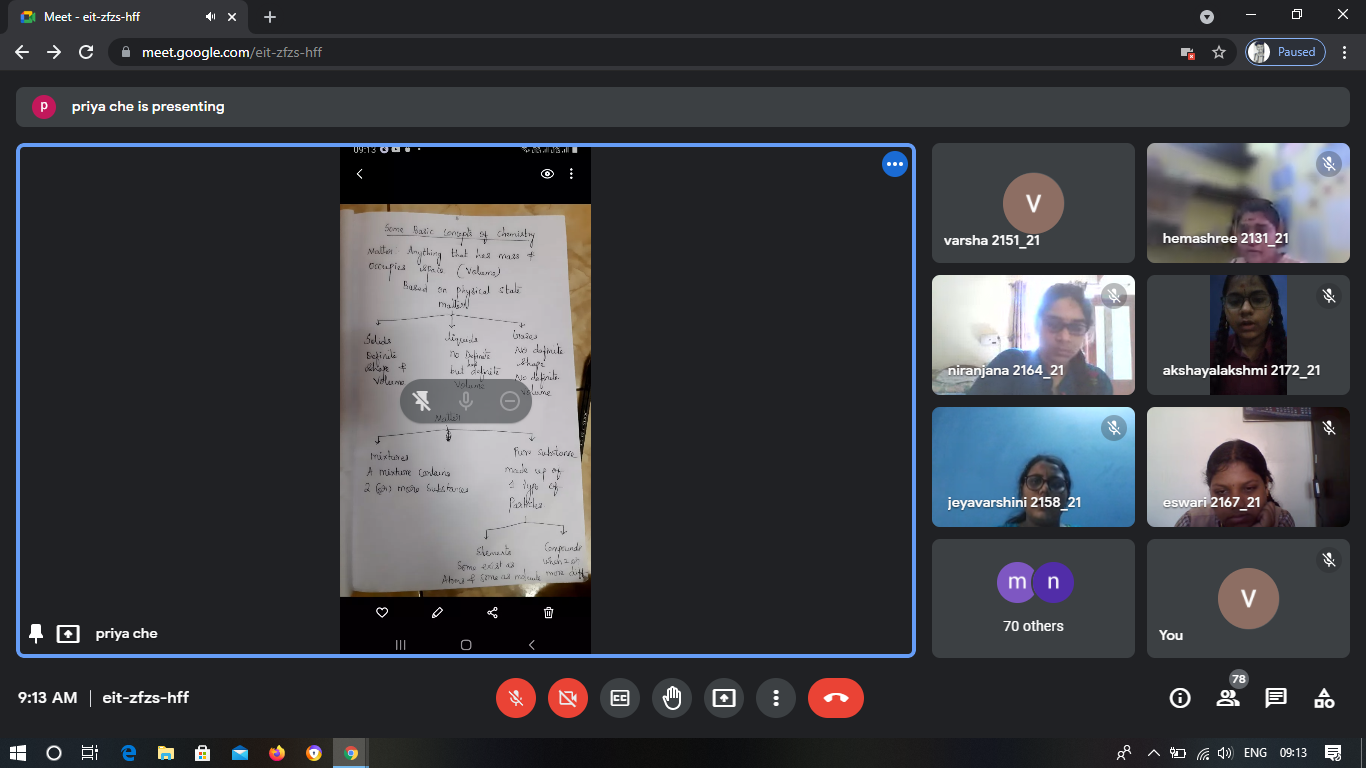 Meet - eit-zfzs-hff
meet.google.com/eit-zfzs-hff
Paused
p
priya che is presenting
09:13
Some Basic concepts of chemistry
Matter Anything that has mass &
Occupies space (Volume)
Based on physical state
matter
Solids
Definite
shape &
Volume
liquids
no Definite
but definite
Volume
Gases
No definite
shape
No definite
volume
Matter
mixtures
A mixture contains
2 (or) more substances
Pure substance
made up of
1 type of
Particles
Elements
Some exist as
Atoms & some as molecule
Compounds
which 2 or
more diff
priya che
V
varsha 2151_21
hemashree 2131_21
niranjana 2164_21
akshayalakshmi 2172_21
jeyavarshini 2158_21
eswari 2167_21
m n
70 others
V
You
9:13 AM | eit-zfzs-hff
CC
78
ENG 09:13